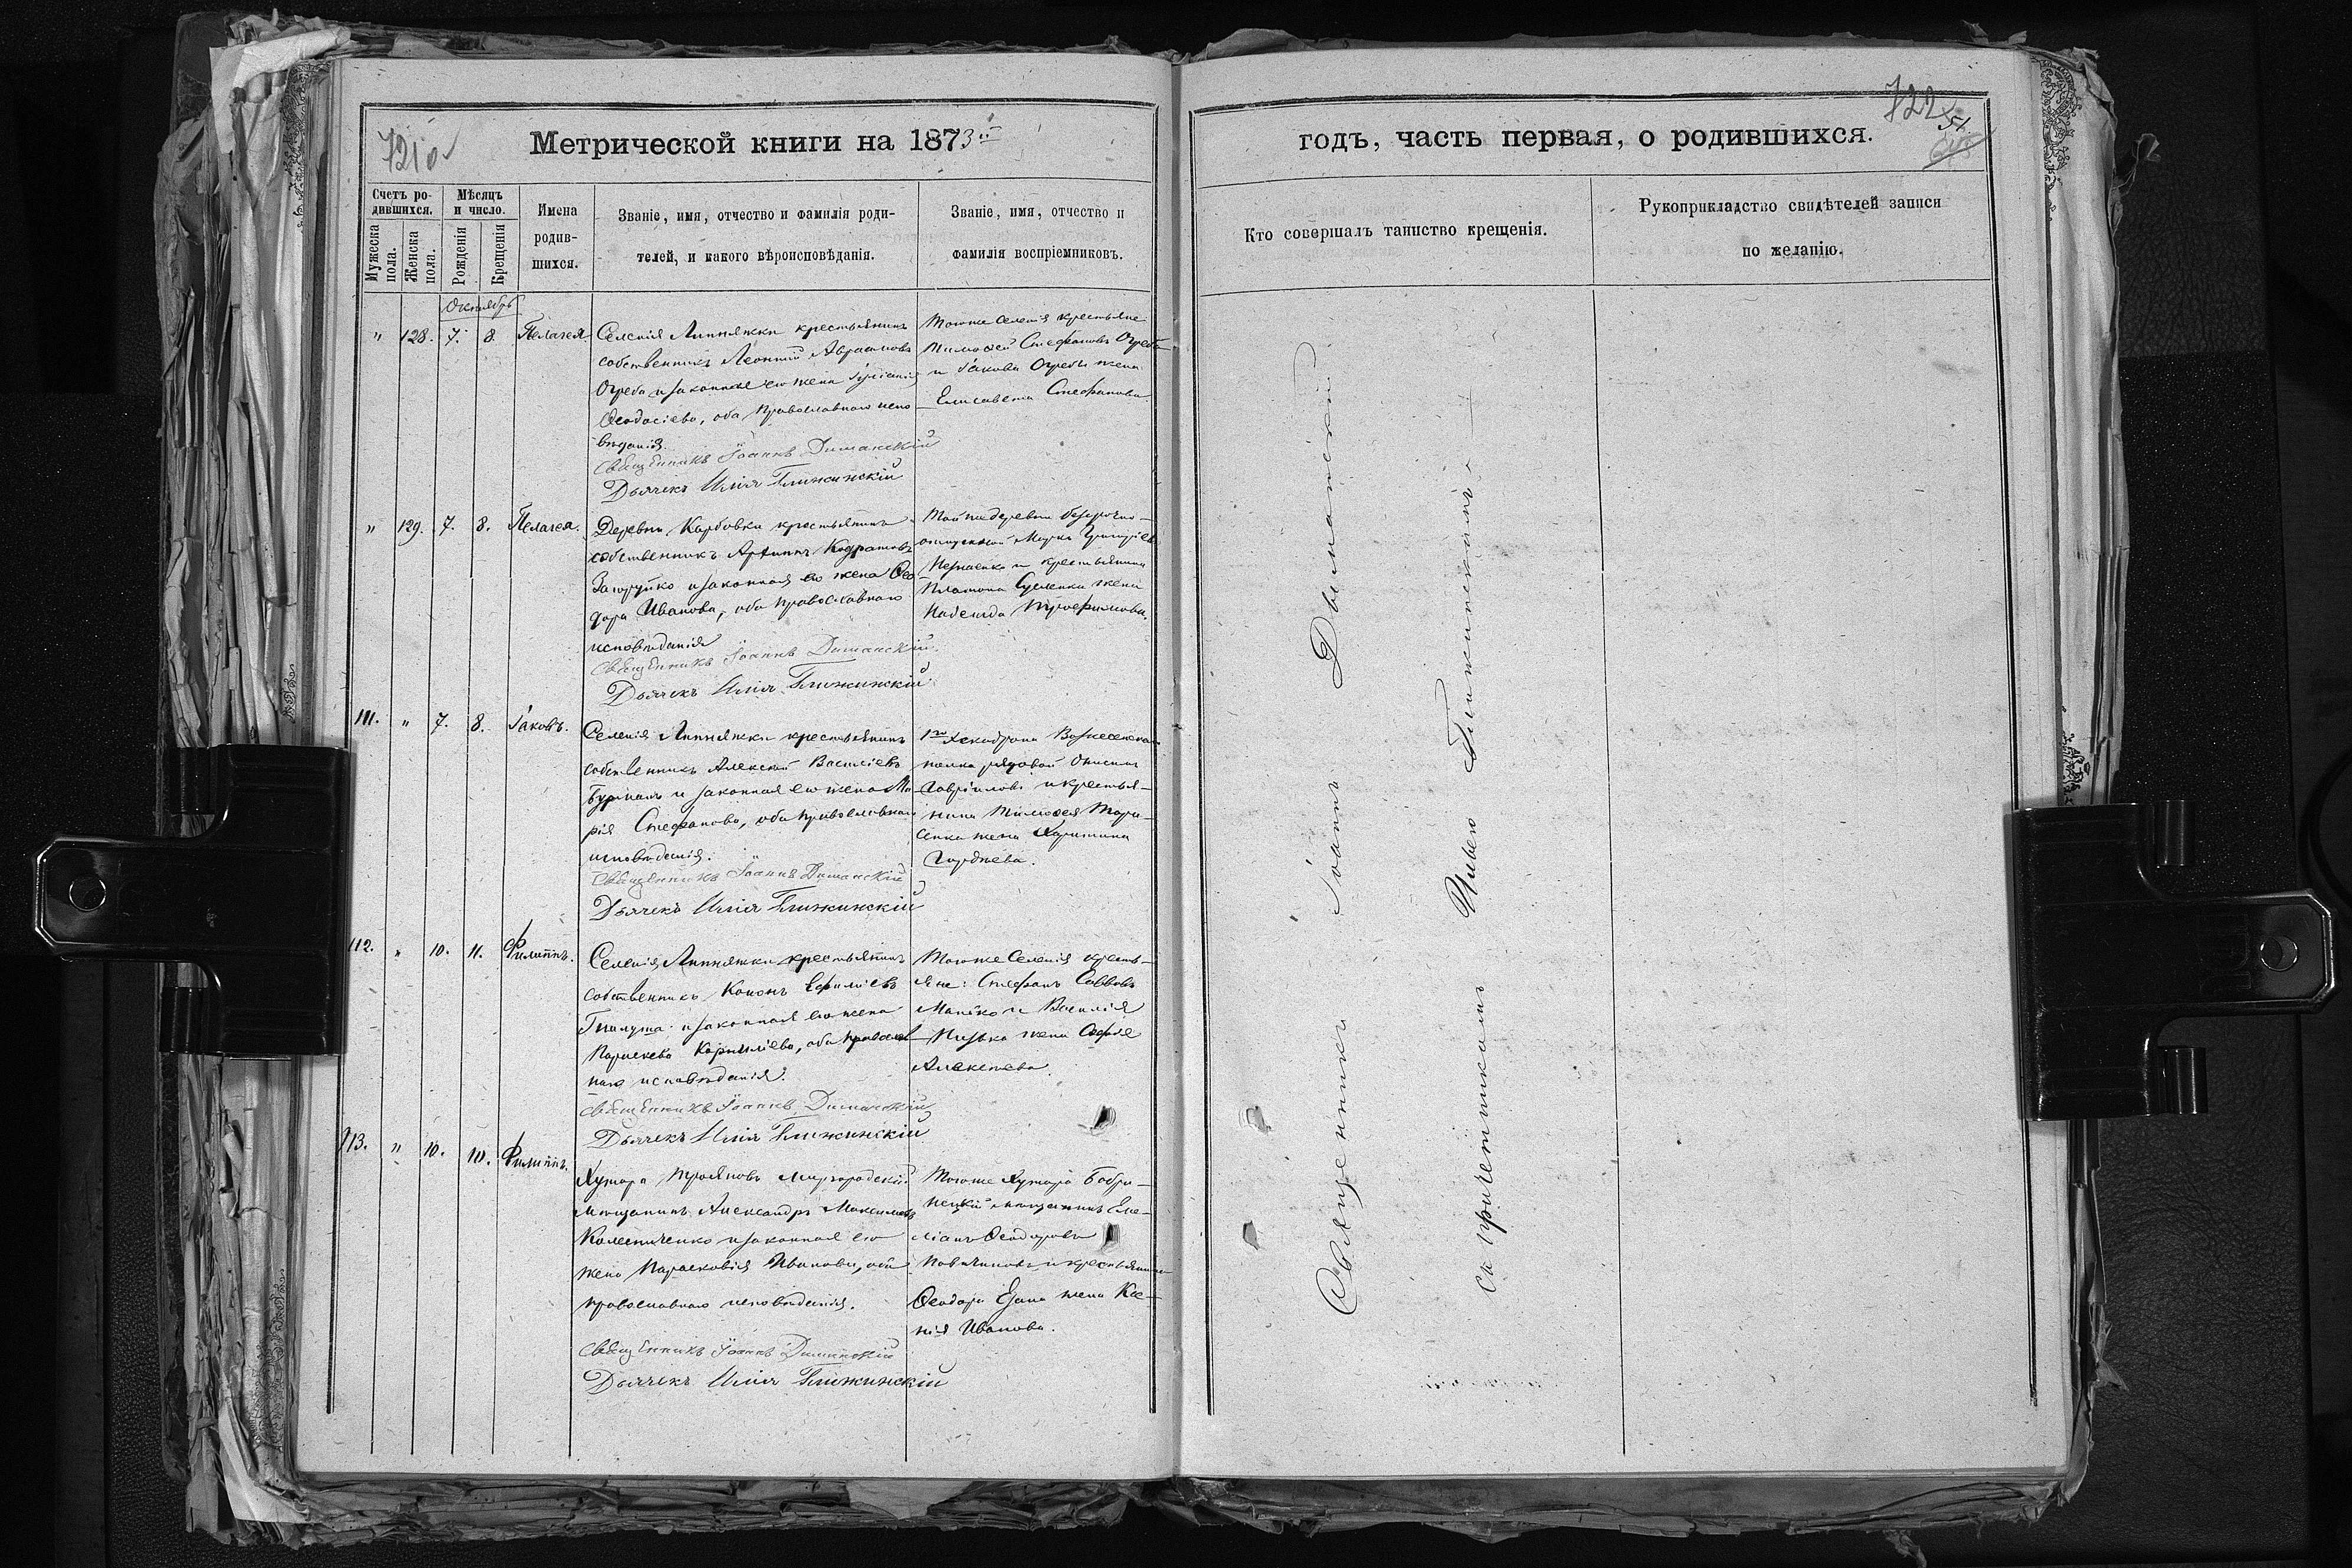 721 об
Метрической книги на 1873й
Счетъ ро-
дившихся.
Мѣсяцъ
и число.
Мужеска
пола.
Женска
пола.
Рожденія
Крещенія
Имена
родив-
шихся.
Званіе, имя, отчество и фамилія роди-
телей, и какого вѣроисповѣданія.
Званіе, имя, отчество и
фамилія воспріемниковъ.
Октябрь
" 128. 7. 8. Пелагея
Селенія Липняжки крестьянинъ
собственникъ Леонтій Авраамовъ
Огреба и законная его жена
Ѳеодосіева, оба православнаго испо-
вѣданія.
Священникъ Іоаннъ Диманскій
Дьячекъ Илія Глижинскій
Тогоже селенія крестьяне
Тимоѳей Стефановъ Огреба
и Іакова Огребы жена
Елисавета Стефанова.
" 129. 7. 8. Пелагея.
Деревни Карбовки крестьянинъ
собственникъ Архипъ Кодратовъ
Загоруйко и законная его жена Ѳео-
дора Иванова, оба православнаго
исповѣданія
Священникъ Іоаннъ Диманскій.
Дьячекъ Илія Глижинскій
Той же деревни безсрочно-
отпускной Марко Григоріевъ
и крестьянина
Платона жена
Надежда Трофимова.
111. " 7. 8. Іаковъ.
Селенія Липняжки крестьянинъ
собственникъ Алексій Василіевъ
и законная его жена Ма-
рія Стефанова, оба православнаго
исповѣданія.
Священникъ Іоаннъ Диманскій
Дьячекъ Илія Глижинскій
1го Эскадрона Вознесенскаго
полка рядовой
Гавріиловъ и крестья-
нина Тимоѳея
жена Харитина
Гордѣева.
112. " 10. 11. Филиппъ.
Селенія Липняжки крестьянинъ
собственникъ Кононъ Ефиміевъ
и законная его жена
Параскева Корниліева, оба православ-
наго исповѣданія.
Священникъ Іоаннъ Диманскій
Дьячекъ Илія Глижинскій
Тогоже селенія кресть-
яне: Стефанъ Саввовъ
Манѣко и Василія
жена Софія
Алексѣева
113. " 10. 10. Филиппъ.
Хутора Трояновъ Миргородскій
мѣщанинъ Александръ Максимовъ
Колесниченко и законная его
жена Параскевія Иванова, оба
православнаго исповѣданія.
Священникъ Іоаннъ Диманскій
Дьячекъ Илія Глижинскій
Тогоже хутора Бобри-
нецкій мѣщанинъ Еме-
ліанъ Ѳеодоровъ
и крестьянина
Ѳеодора жена Ксе-
нія Иванова.
годъ, часть первая, о родившихся.
722
51.
Кто совершалъ таинство крещенія.
Рукоприкладство свидѣтелей записи
по желанію.
Священникъ Іоаннъ Диманскій
Съ причетникомъ Ильею Глижинскимъ